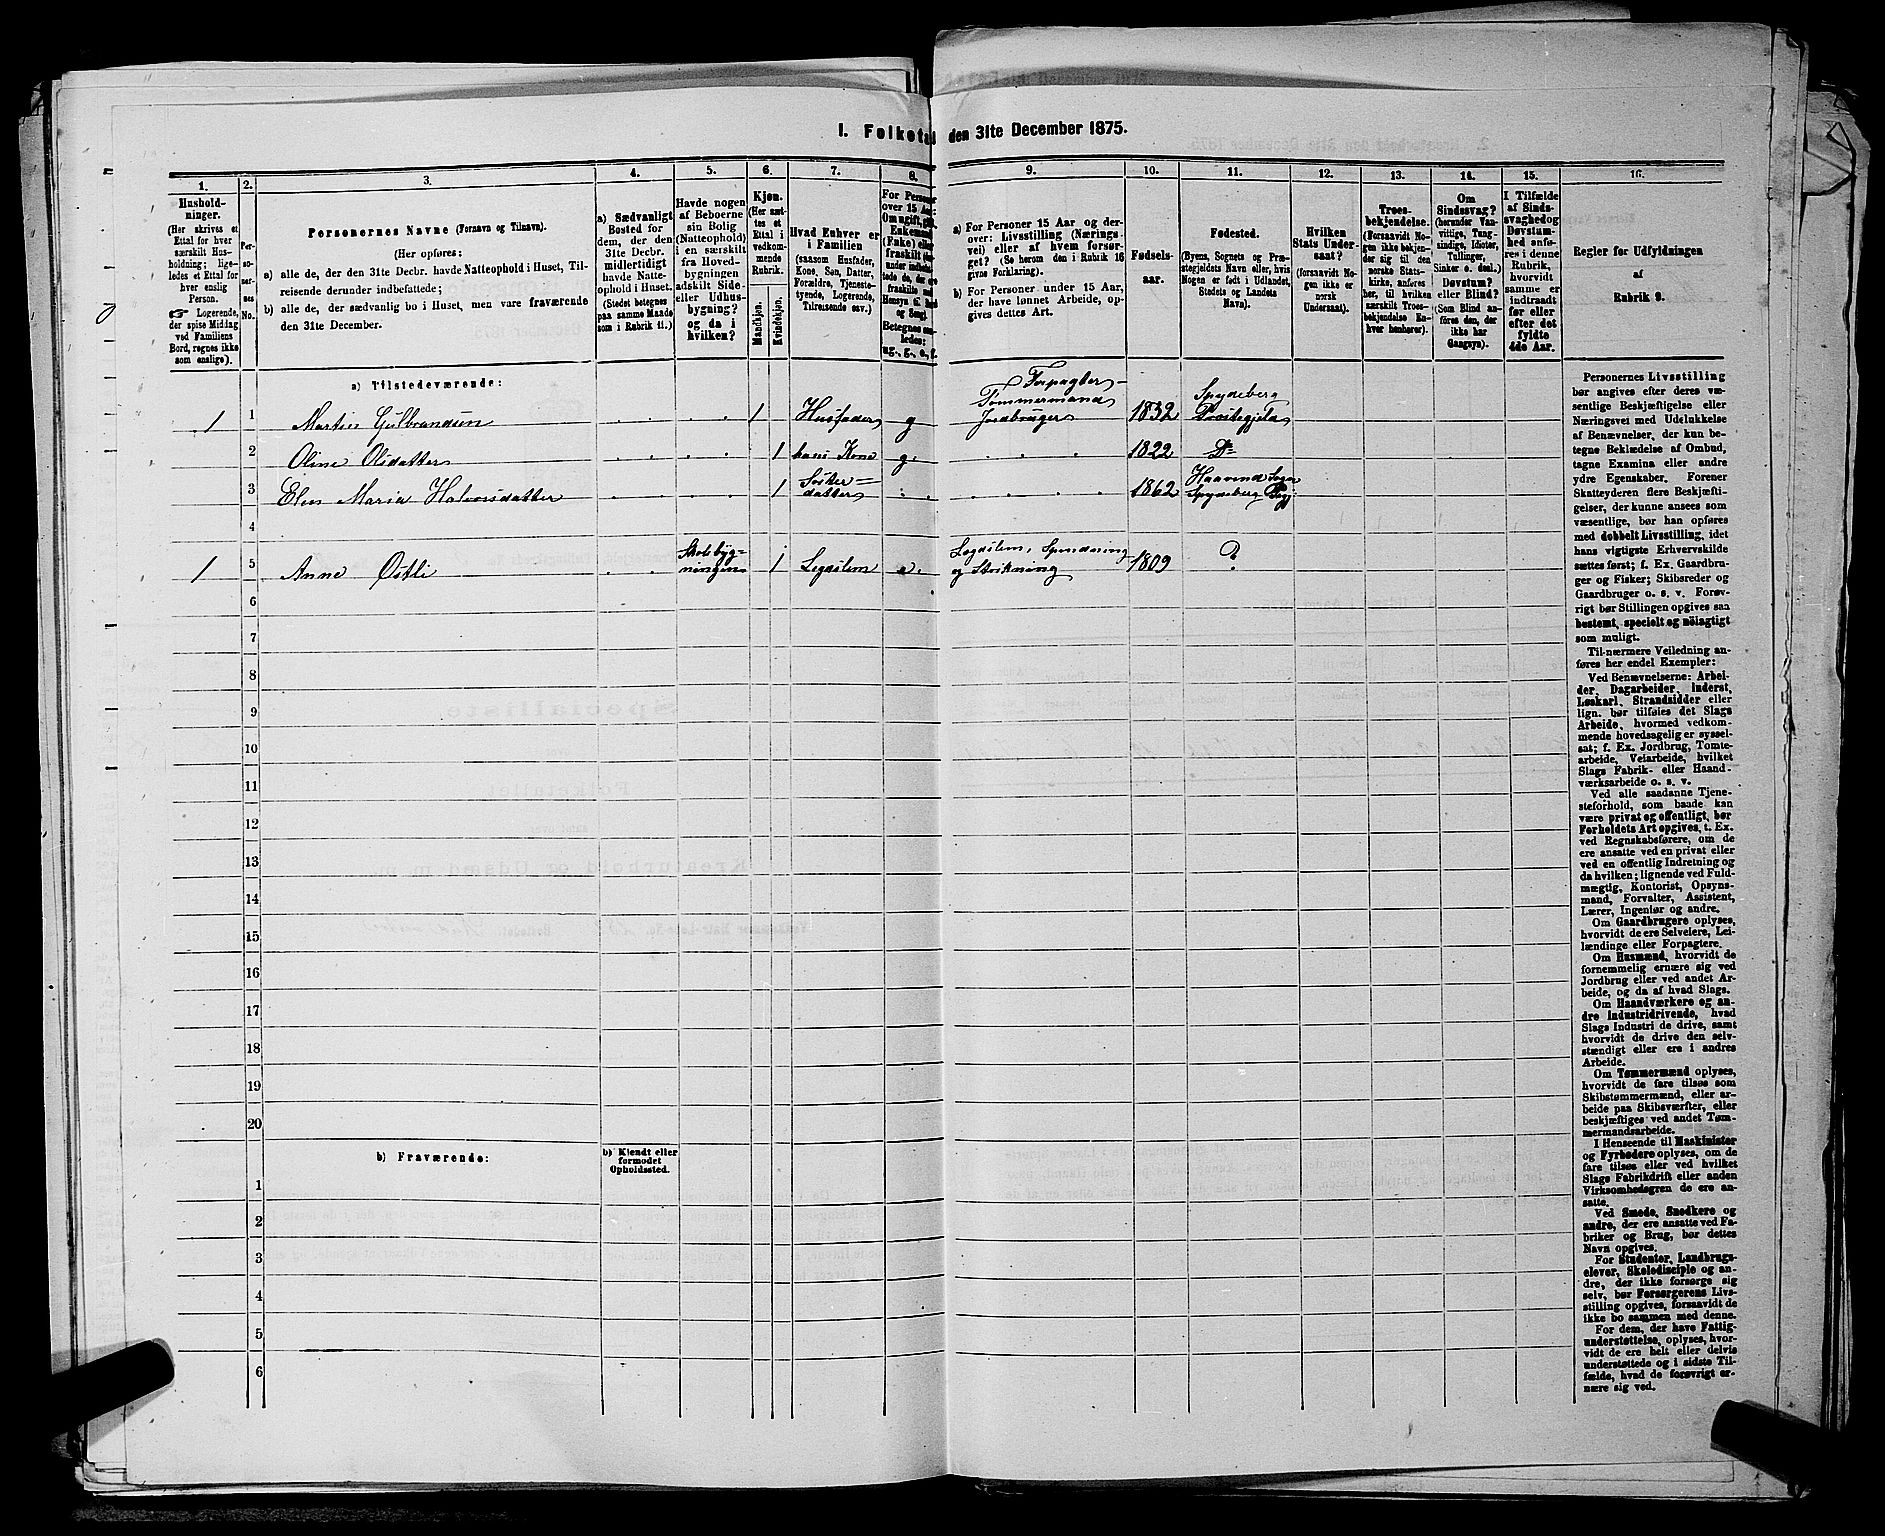 I. Folketal den 31te December 1875.
1. 2. 3. 4. 5. 6. 7. 8. 9. 10. 11. 12. 13. 14. 15. 16.
Hushold-
ninger.
(Her skrives et
Ettal for hver
særskilt Hus-
holdning; lige-
ledes et Ettal for
hver enslig
Person.
☞ Logerende,
der spise Middag
ved Familiens
Bord, regnes ikke
som enslige).
Per-
so-
ner-
nes
No.
Personernes Navne (Fornavn og Tilnavn).
(Her opføres:
a) alle de, der den 31te Decbr. havde Natteophold i Huset, Til-
reisende derunder indbefattede;
b) alle de, der sædvanlig bo i Huset, men vare fraværende
den 31te December.
a) Sædvanligt
Bosted for
dem, der den
31te Decbr.
midlertidigt
havde Natte-
ophold i Huset.
(Stedet betegnes
paa samme Maade
som i Rubrik 11.)
Havde nogen
af Beboerne
sin Bolig
(Natteophold)
i en særskilt
fra Hoved-
bygningen
adskilt Side-
eller Udhus-
bygning?
og da i
hvilken?
Kjøn.
(Her sæt-
tes et
Ettal i
vedkom-
mende
Rubrik.
Mandkjøn.
Kvindekjøn.
Hvad Enhver er
i Familien
(saasom Husfader,
Kone, Søn, Datter,
Forældre, Tjeneste-
tyende, Logerende,
Tilreisende osv.)
For Personer
over 15 Aar:
Om ugift, gift,
Enkemand
(Enke) eller
fraskilt
Betegnes saa-
ledes:
ug., g., e., f.
a) For Personer 15 Aar og der-
over: Livsstilling (Nærings-
vei) eller af hvem forsør-
get? (Se herom den i Rubrik 16
givne Forklaring).
b) For Personer under 15 Aar,
der have lønnet Arbeide, op-
gives dettes Art.
Fødsels-
aar.
Fødested.
(Byens, Sognets og Præ-
stegjeldets Navn eller, hvis
Nogen er født i Udlandet,
Stedets og Landets
Navn).
Hvilken
Stats Under-
saat?
(forsaavidt No-
gen ikke er
norsk
Undersaat).
Troes-
bekjendelse.
(Forsaavidt No-
gen ikke bekjen-
der sig til den
norske Stats-
kirke, anføres
her, til hvilken
særskilt Troes-
bekjendelse En-
hver henhører).
Om
Sindssvag?
(herunder Van-
vittige, Tung-
sindige, Idioter,
Tullinger,
Sinker o. desl.)
Døvstum?
eller Blind?
(Som Blind an-
føres den, der
ikke har
Gangsyn).
I Tilfælde
af Sinds-
svaghed og
Døvstum-
hed anfø-
res i denne
Rubrik,
hvorvidt
samme er
indtraadt
før eller
efter det
fyldte
4de Aar.
Regler for Udfyldningen
af
Rubrik 9.
a) Tilstedeværende:
Forpagter-
Tømmermand Spydeberg
1 1 Martin Gulbrandsen 1 Husfader g Jordbruger 1832 Præstegjeld
2 Oline Olsdatter 1 hans Kone g. 1822 Do
Søster= Haavind Sogn
3 Elen Maria Halvorsdatter 1 datter 1862 Spydeberg Pgj:
4
Skolebyg= Legdslem, Spinding
1 5 Anne Østli ningen 1 Legdslem e. og Strikning 1809 ?
6
7
8
9
10
11
12
13
14
15
16
17
18
19
20
b) Fraværende:
b) Kjendt eller
formodet
Opholdssted.
1
2
3
4
5
6
Personernes Livsstilling
bør angives efter deres væ-
sentlige Beskjæftigelse eller
Næringsvei med Udelukkelse
af Benævnelser, der kun be-
tegne Beklædelse af Ombud,
tagne Examina eller andre
ydre Egenskaber. Forener
Skatteyderen flere Beskjæfti-
gelser, der kunne ansees som
væsentlige, bør han opføres
med dobbelt Livsstilling, idet
hans vigtigste Erhvervskilde
sættes først; f. Ex. Gaardbru-
ger og Fisker; Skibsreder og
Gaardbruger o. s. v. Forøv-
rigt bør Stillingen opgives saa
bestemt, specielt og nöiagtigt
som muligt.
Til nærmere Veiledning an-
føres her endel Exempler:
Ved Benævnelserne: Arbei-
der, Dagarbeider, Inderst,
Løskarl, Strandsidder eller
lign. bør tilføies det Slags
Arbeide, hvormed vedkom-
mende hovedsagelig er syssel-
sat; f. Ex. Jordbrug, Tomte-
arbeide, Veiarbeide, hvilket
Slags Fabrik- eller Haand-
værksarbeide o. s. v.
Ved alle saadanne Tjene-
steforhold, som baade kan
være privat og offentligt, bør
Forholdets Art opgives, t. Ex.
ved Regnskabsførere, om de
ere ansatte ved en privat eller
ved en offentlig Indretning og
da hvilken; lignende ved Fuld-
mægtig, Kontorist, Opsyns-
mand, Forvalter, Assistent,
Lærer, Ingeniør og andre.
Om Gaardbrugere oplyses,
hvorvidt de ere Selveiere, Lei-
lændinge eller Forpagtere.
Om Husmænd, hvorvidt de
fornemmelig ernære sig ved
Jordbrug eller ved andet Ar-
beide, og da af hvad Slags.
Om Haandværkere og an-
dre Industridrivende, hvad
Slags Industri de drive, samt
hvorvidt de drive den selv-
stændigt eller ere i andres
Arbeide.
Om Tømmermænd oplyses,
hvorvidt de fare tilsøs som
Skibstømmermænd, eller ar-
beide paa Skibsværfter, eller
beskjæftiges ved andet Tøm-
mermandsarbeide.
I Henseende til Maskinister
og Fyrbødere oplyses, om de
fare tilsøs eller ved hvilket
Slags Fabrikdrift eller anden
Virksomhedsgren de ere an-
satte.
Ved Smede, Snedkere og
andre, der ere ansatte ved Fa-
briker og Brug, bør dettes
Navn opgives.
For Studenter, Landbrugs-
elever, Skoledisciple og an-
dre, der ikke forsørge sig
selv, bør Forsørgerens Livs-
stilling opgives, forsaavidt de
ikke bo sammen med denne.
For dem, der have Fattig-
understøttelse, oplyses, hvor-
vidt de ere helt eller delvis
understøttede og i sidste Til-
fælde, hvad de forøvrigt er-
nære sig ved.